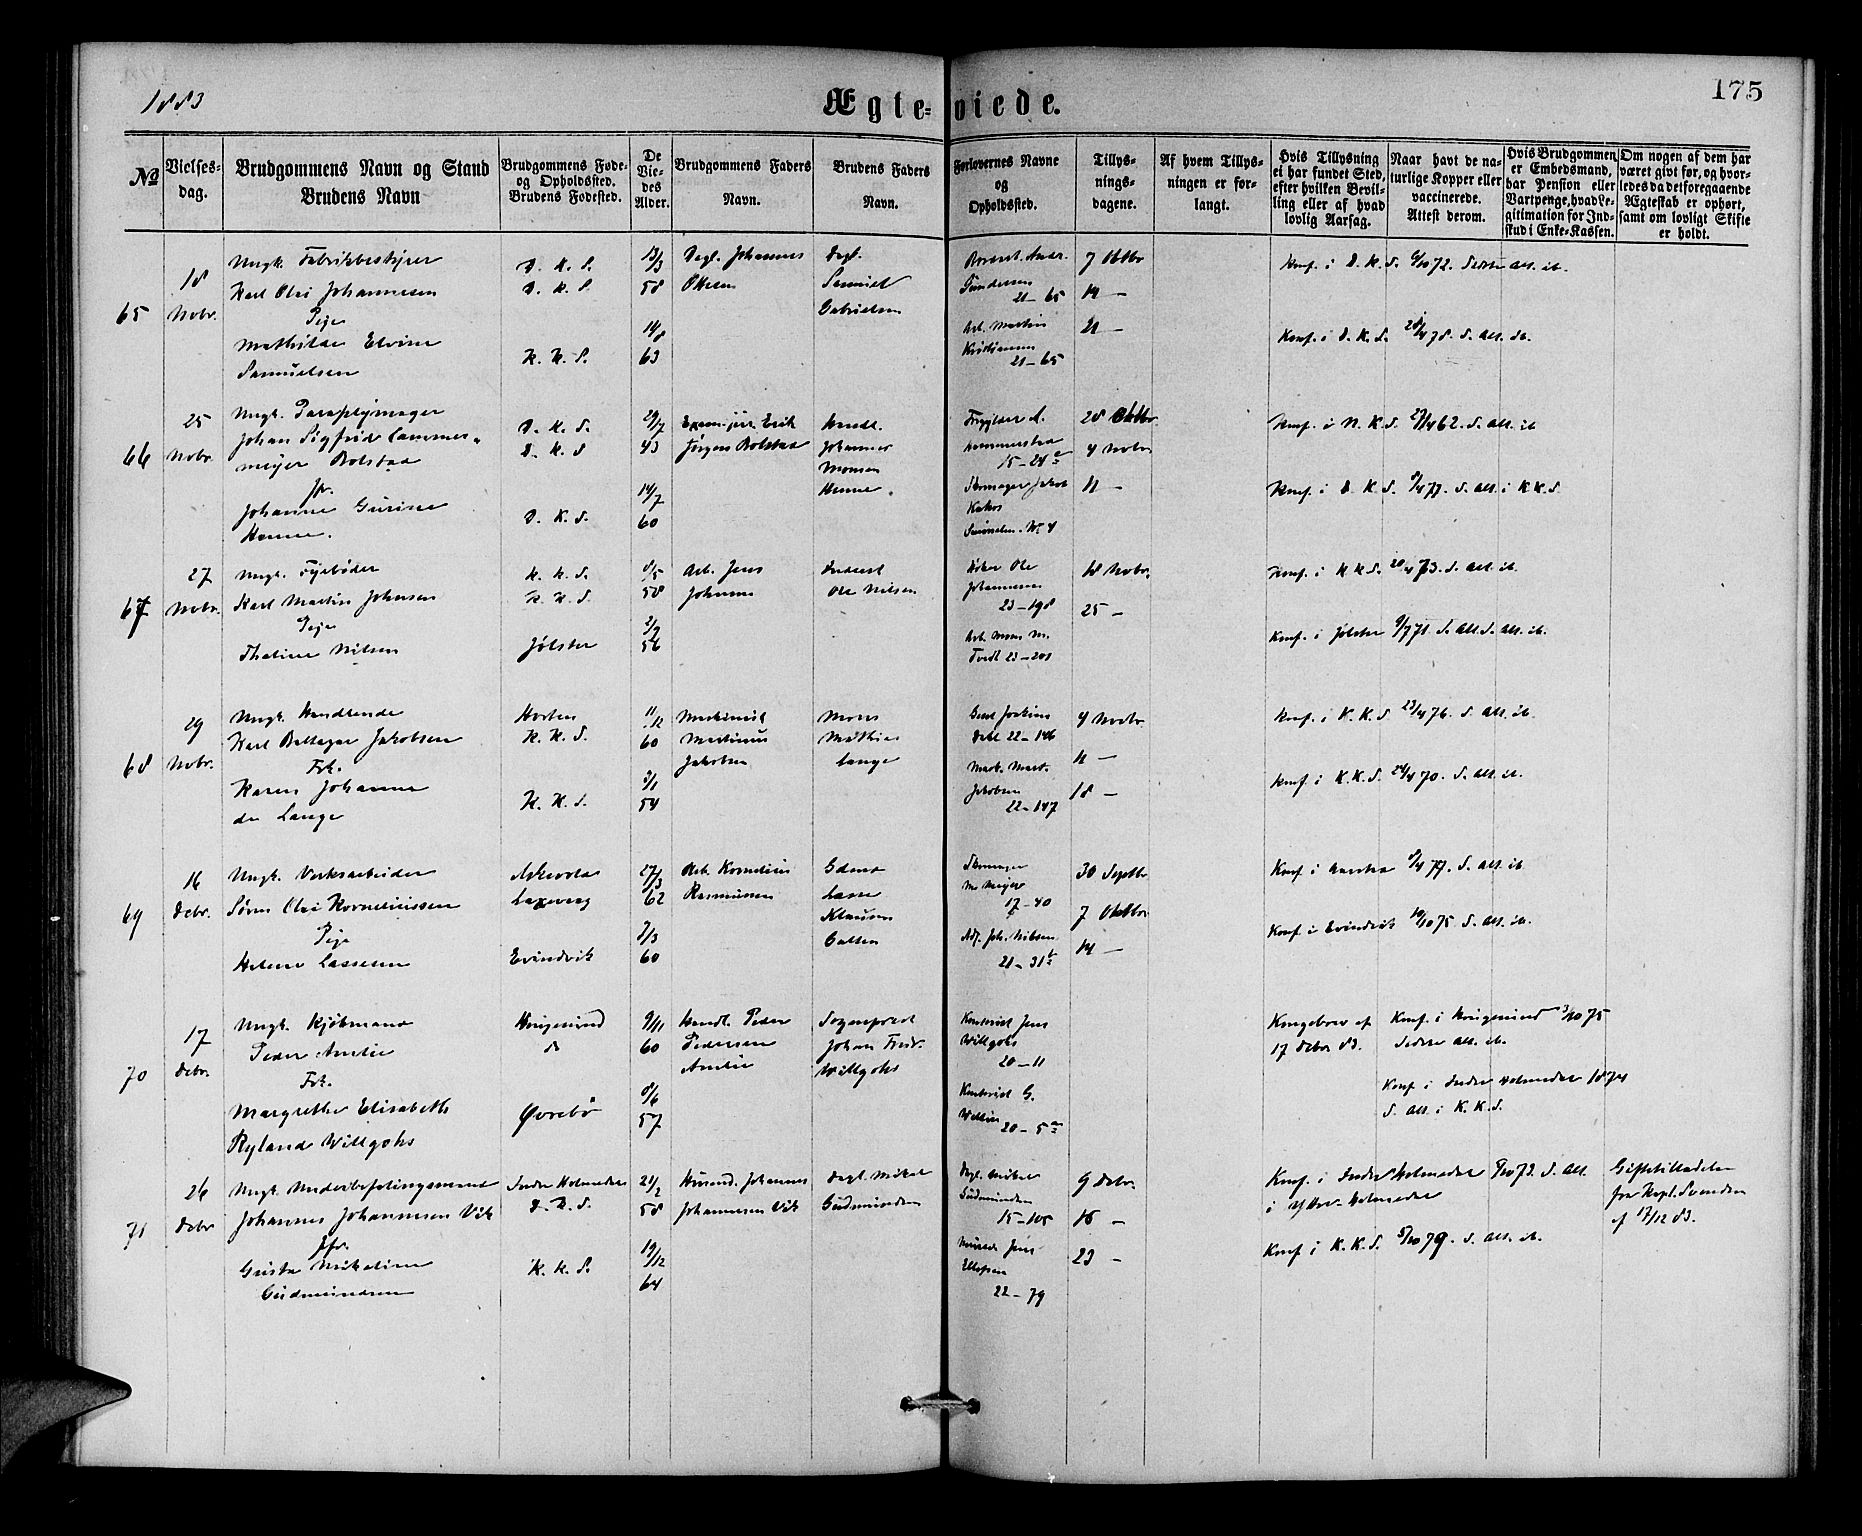 1883
Ægteviede.
175
No
Vielses-
dag.
Brudgommens Navn og Stand
Brudens Navn
Brudgommens Føde-
og Opholdssted.
Brudens Fødested.
De
Vie-
des
Alder.
Brudgommens Faders
Navn.
Brudens Faders
Navn.
Forlovernes Navne
og
Opholdssted.
Tillys-
nings-
dagene.
Af hvem Tillys-
ningen er for-
langt.
Hvis Tillysning
ei har fundet Sted,
efter hvilken Bevil-
ling eller af hvad
lovlig Aarsag.
Naar havt de na-
turlige Kopper eller
vaccinerede.
Attest derom.
Hvis Brudgommen
er Embedsmand,
har Pension eller
Vartpenge, hvad Le-
gitimation for Ind-
skud i Enke-Kassen.
Om nogen af dem har
været gift før, og hvor-
ledes da det foregaaende
Ægteskab er ophørt,
samt om lovligt Skifte
er holdt.
65
18
Novbr.
Ungk. Fabrikbestyrer
Karl Olai Johannesen
Pige
Mathilde Elvine
Samuelsen
D. K. S.
D. K. S.
K. K. S.
13/3
58
14/8
63
Dagl. Johannes
Dagl.
Samuel
Gabrielsen
21-65
Arb. Martin
Kristiansen
21-65
7 Oktbr
14 -
21 -
Konf. i D. K. S. 6/10 72. Sidste Att. ib.
Konf. i D. K. S. 28/4 78. S. Att. ib.
66
25
Novbr.
Ungk. Paraplymager
Johan Sigfrid Lammer-
meyer Bolstad
Jfr.
Johanne Gurine
Henne.
D. K. S.
D. K. S
D. K. S.
29/7
43
14/7
60
Erik
Jørgen Bolstad
Handl.
Johannes
Monsen
Henne.
15-24a
Skomager Jakob
28 Oktbr
4 Novbr
11 -
Konf. i N. K. S. 27/4 62. S. Att. ib
Konf. i D. K. S. 8/4 77. S. Att. i K.K.S.
67
27
Novbr.
Ungk. Fyrbøder
Karl Martin Johnsen
Pige
Thaline Nilsen
K. K. S.
K. K. S.
Jølster
8/5
58
2/7
56
Arb. Jens
Johnsen
Inderst
Ole Nilsen
Ole
Johannesen
23-198
Arb. Mons M.
Tvedt 23-201
18 Novbr.
25 -
Konf. i K. K. S. 20/4 73. S. Att. ib.
Konf. i Jølster 9/7 71. S. Att. ib.
68
29
Novbr.
Ungk. Handlende
Karl Baltazar Jakobsen
Frk.
Karen Johanne
de Lange
Horten
K. K. S.
K. K. S.
11/12
60
3/1
54
Maskinist
Martinus
Jakobsen
Mons
Mathias
Lange
22-146
Mask. Mart.
Jakobsen
22-147
4 Novbr
11 -
18 -
Konf. i K. K. S. 23/4 76. S. Att. ib.
Konf. i K. K. S. 24/4 70. S. Att. ib.
69
16
Debr.
Ungk. Verksarbeider
Søren Olai Korneliussen
Pige
Helene Lassesen
Askevold
Laxevaag
Evindvik
27/3
62
3/3
60
Arb. Kornelius
Rasmussen
Gdmd
Lasse
Klausen
Skomager
M. Meyer
17-40
Joh. Nilsen
21-31b
30 Septbr
7 Oktbr
14 -
Konf. i Aarstad 8/4 77. S. Att. ib
Konf. i Evindvik 10/10 75. S. Att. ib.
70
17
Debr.
Ungk. Kjøbmand
Peder Amlie
Frk.
Margrethe Elisabeth
Ryland Willgohs
Haugesund
do
Øvrebø
9/11
60
8/6
57
Handl. Peder
Pedersen
Amlie
Sogneprest
Johan Fredr.
Willgohs
Kontorist Jens
Willgohs
20-11
Kontorist G.
20-5a
Kongebrev af
17 Debr. 83.
Konf. i Haugesund 3/10 75
Sidste Att. ib.
Konf. i Indre Holmedal 1874
S. Att. i K. K. S.
71
26
Debr
Ungk. Underbefalingsmand
Johannes Johannesen Vik
Jfr.
Gusta Mikaline
Gudmundsen
Indre Holmedal
D. K. S.
K. K. S.
21/2
58
19/12
64
Husmd. Johannes
Johannesen Vik
Dagl. Mikal
Gudmundsen
Dagl. Mikal
Gudmundsen
15-105
Jens
Ellefsen
22-79
9 Debr.
16 -
23 -
Konf. i Indre Holmedal 6/10 72. S. Att.
i Ytre-Holmedal
Konf. i K. K. S. 5/10 79. S. Att. ib.
Giftetilladelse
fra Kapt. Svendsen
af 17/12 83.